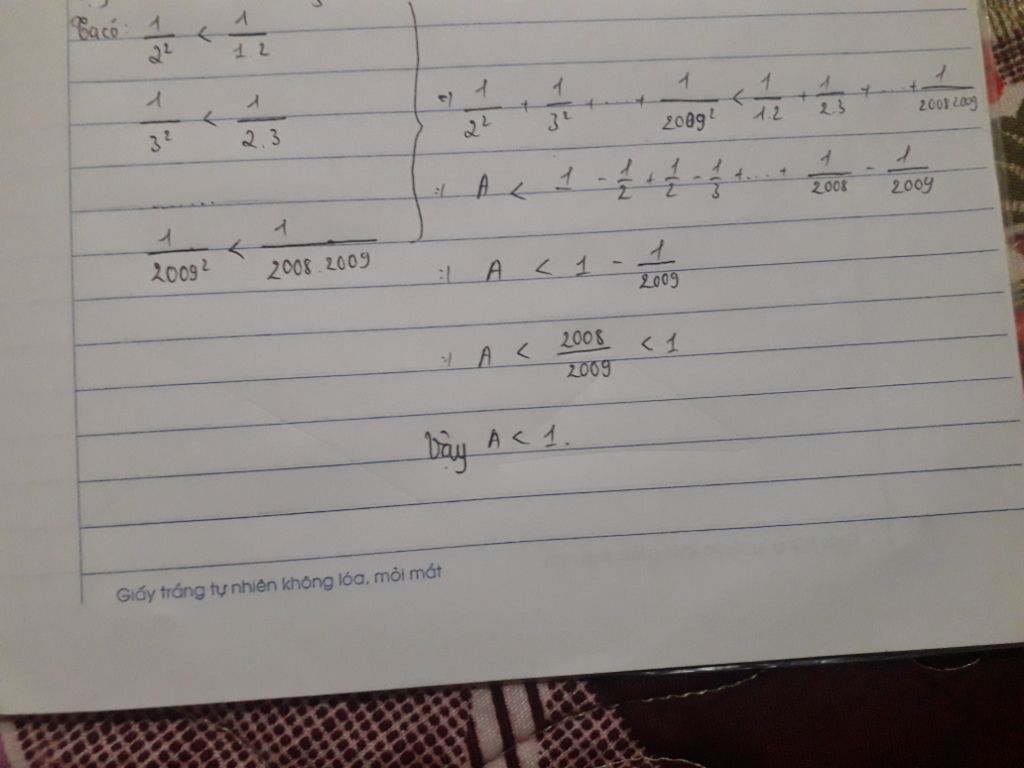 Ta có: 1/2² < 1/1.2
1/3² < 1/2.3
........
1/2009² < 1/2008.2009
=) 1/2² + 1/3² + .... + 1/2009² < 1/1.2 + 1/2.3 + .... + 1/2008.2009
=) A < 1 - 1/2 + 1/2 - 1/3 + ... + 1/2008 - 1/2009
=) A < 1 - 1/2009
=) A < 2008/2009 < 1
Vậy A < 1.
Giấy trắng tự nhiên không lóa, mỏi mắt